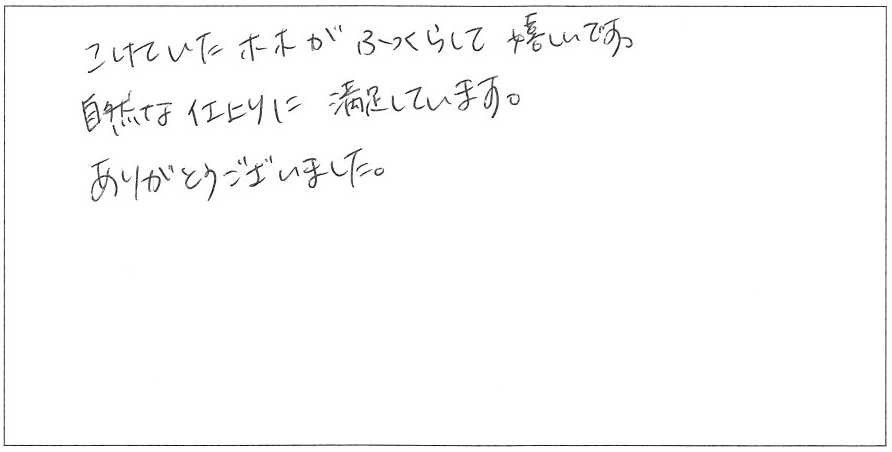 こけていたホホがふっくらして嬉しいです。
自然な仕上りに満足しています。
ありがとうございました。